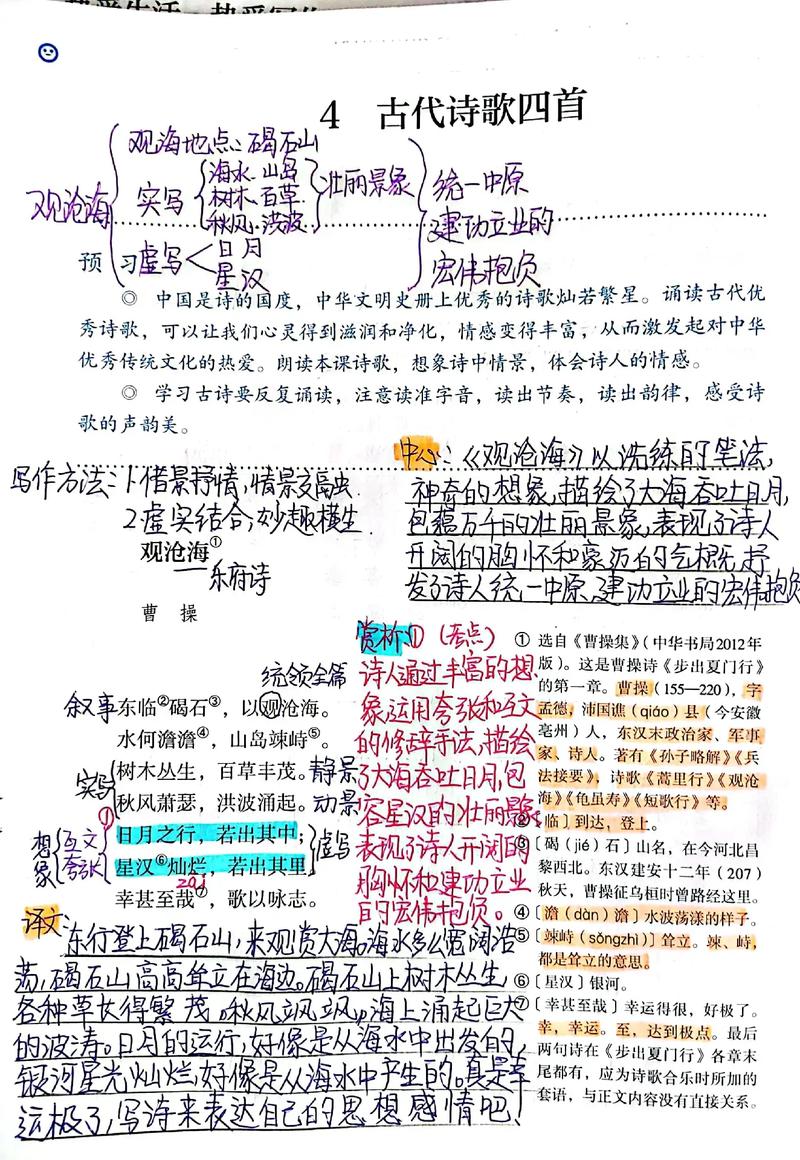 4 古代诗歌四首
观海地点:碣石山
观沧海
实写
海水.山岛
树木.百草
秋风.洪波
壮丽景象
虚写
日月
星汉
统一中原
建功立业的
宏伟抱负
预 习
◎ 中国是诗的国度，中华文明史册上优秀的诗歌灿若繁星。诵读古代优
秀诗歌，可以让我们心灵得到滋润和净化，情感变得丰富，从而激发起对中华
优秀传统文化的热爱。朗读本课诗歌，想象诗中情景，体会诗人的情感。
◎ 学习古诗要反复诵读，注意读准字音，读出节奏，读出韵律，感受诗
歌的声韵美。
写作方法:1.借景抒情,情景交融
2.虚实结合,妙趣横生
中心:《观沧海》以洗练的笔法,
神奇的想象,描绘了大海吞吐日月,
包蕴万千的壮丽景象,表现了诗人
开阔的胸怀和豪迈的气概,抒
发了诗人统一中原、建功立业的宏伟抱负
观沧海①
——乐府诗
曹 操
统领全篇
叙事
东临②碣石③，以观沧海。
水何澹澹④，山岛竦峙⑤。
实写
树木丛生，百草丰茂。静景
秋风萧瑟，洪波涌起。动景
想象
互文
夸张
①
日月之行，若出其中；
星汉⑥灿烂，若出其里。
虚写
幸甚至哉⑦，歌以咏志。
赏析①(考点)
诗人通过丰富的想
象,运用夸张和互文
的修辞手法,描绘
了大海吞吐日月,包
容星汉的壮丽景象
表现了诗人开阔的
胸怀和建功立业
的宏伟抱负。
译文
东行登上碣石山,来观赏大海。海水多么宽阔浩
荡,碣石山高高耸立在海边。碣石山上树木丛生,
各种草长得繁茂。秋风飒飒,海上涌起巨大
的波涛。日月的运行,好像是从海水中出发的,
银河星光灿烂,好像是从海水中产生的。真是幸
运极了,写诗来表达自己的思想感情吧!
① 选自《曹操集》（中华书局2012年
版）。这是曹操诗《步出夏门行》
的第一章。曹操（155—220），字
孟德，沛国谯（qiáo）县（今安徽
亳州）人，东汉末政治家、军事
家、诗人。著有《孙子略解》《兵
法接要》，诗歌《蒿里行》《观沧
海》《龟虽寿》《短歌行》等。
② 〔临〕到达，登上。
③ 〔碣（jié）石〕山名，在今河北昌
黎西北。东汉建安十二年（207）
秋天，曹操征乌桓时曾路经这里。
④ 〔澹（dàn）澹〕水波荡漾的样子。
⑤ 〔竦峙（sǒngzhì）〕耸立。竦、峙，
都是耸立的意思。
⑥ 〔星汉〕银河。
⑦ 〔幸甚至哉〕幸运得很，好极了。
幸，幸运。至，达到极点。最后
两句诗在《步出夏门行》各章末
尾都有，应为诗歌合乐时所加的
套语，与正文内容没有直接关系。